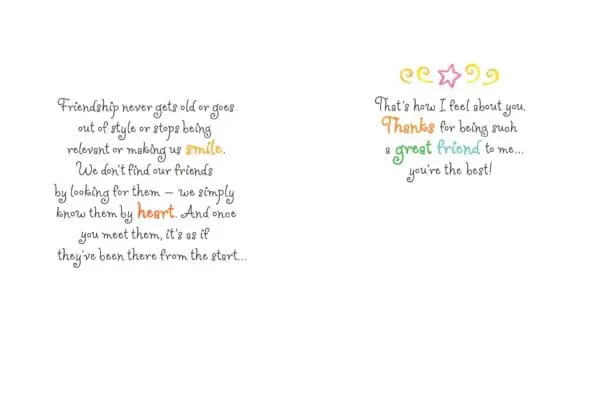 Friendship never gets old or goes
out of style or stops being
relevant or making us smile.
We don't find our friends
by looking for them – we simply
know them by heart. And once
you meet them, it's as if
they've been there from the start...
That's how I feel about you.
Thanks for being such
a great friend to me...
you're the best!